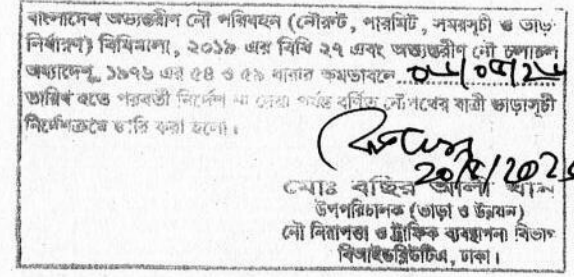 বাংলাদেশ অভ্যন্তরীণ নৌ পরিবহন (নৌরুট, পারমিট, সময়সূচী ও ভাড়া
নির্ধারণ) বিধিমালা, ২০১৯ এর বিধি ২৭ এবং অভ্যন্তরীণ নৌ চলাচল
অধ্যাদেশ, ১৯৭৬ এর ৫৪ ও ৫৯ ধারার ক্ষমতাবলে
তারিখ হতে পরবর্তী নির্দেশ না দেয়া পর্যন্ত বর্ণিত নৌপথের যাত্রী ভাড়াসূচী
নির্দেশক্রমে জারি করা হলো।
মোঃ বছির আলী খান
উপপরিচালক (ভাড়া ও উন্নয়ন)
নৌ নিরাপত্তা ও ট্রাফিক ব্যবস্থাপনা বিভাগ
বিআইডব্লিউটিএ, ঢাকা।